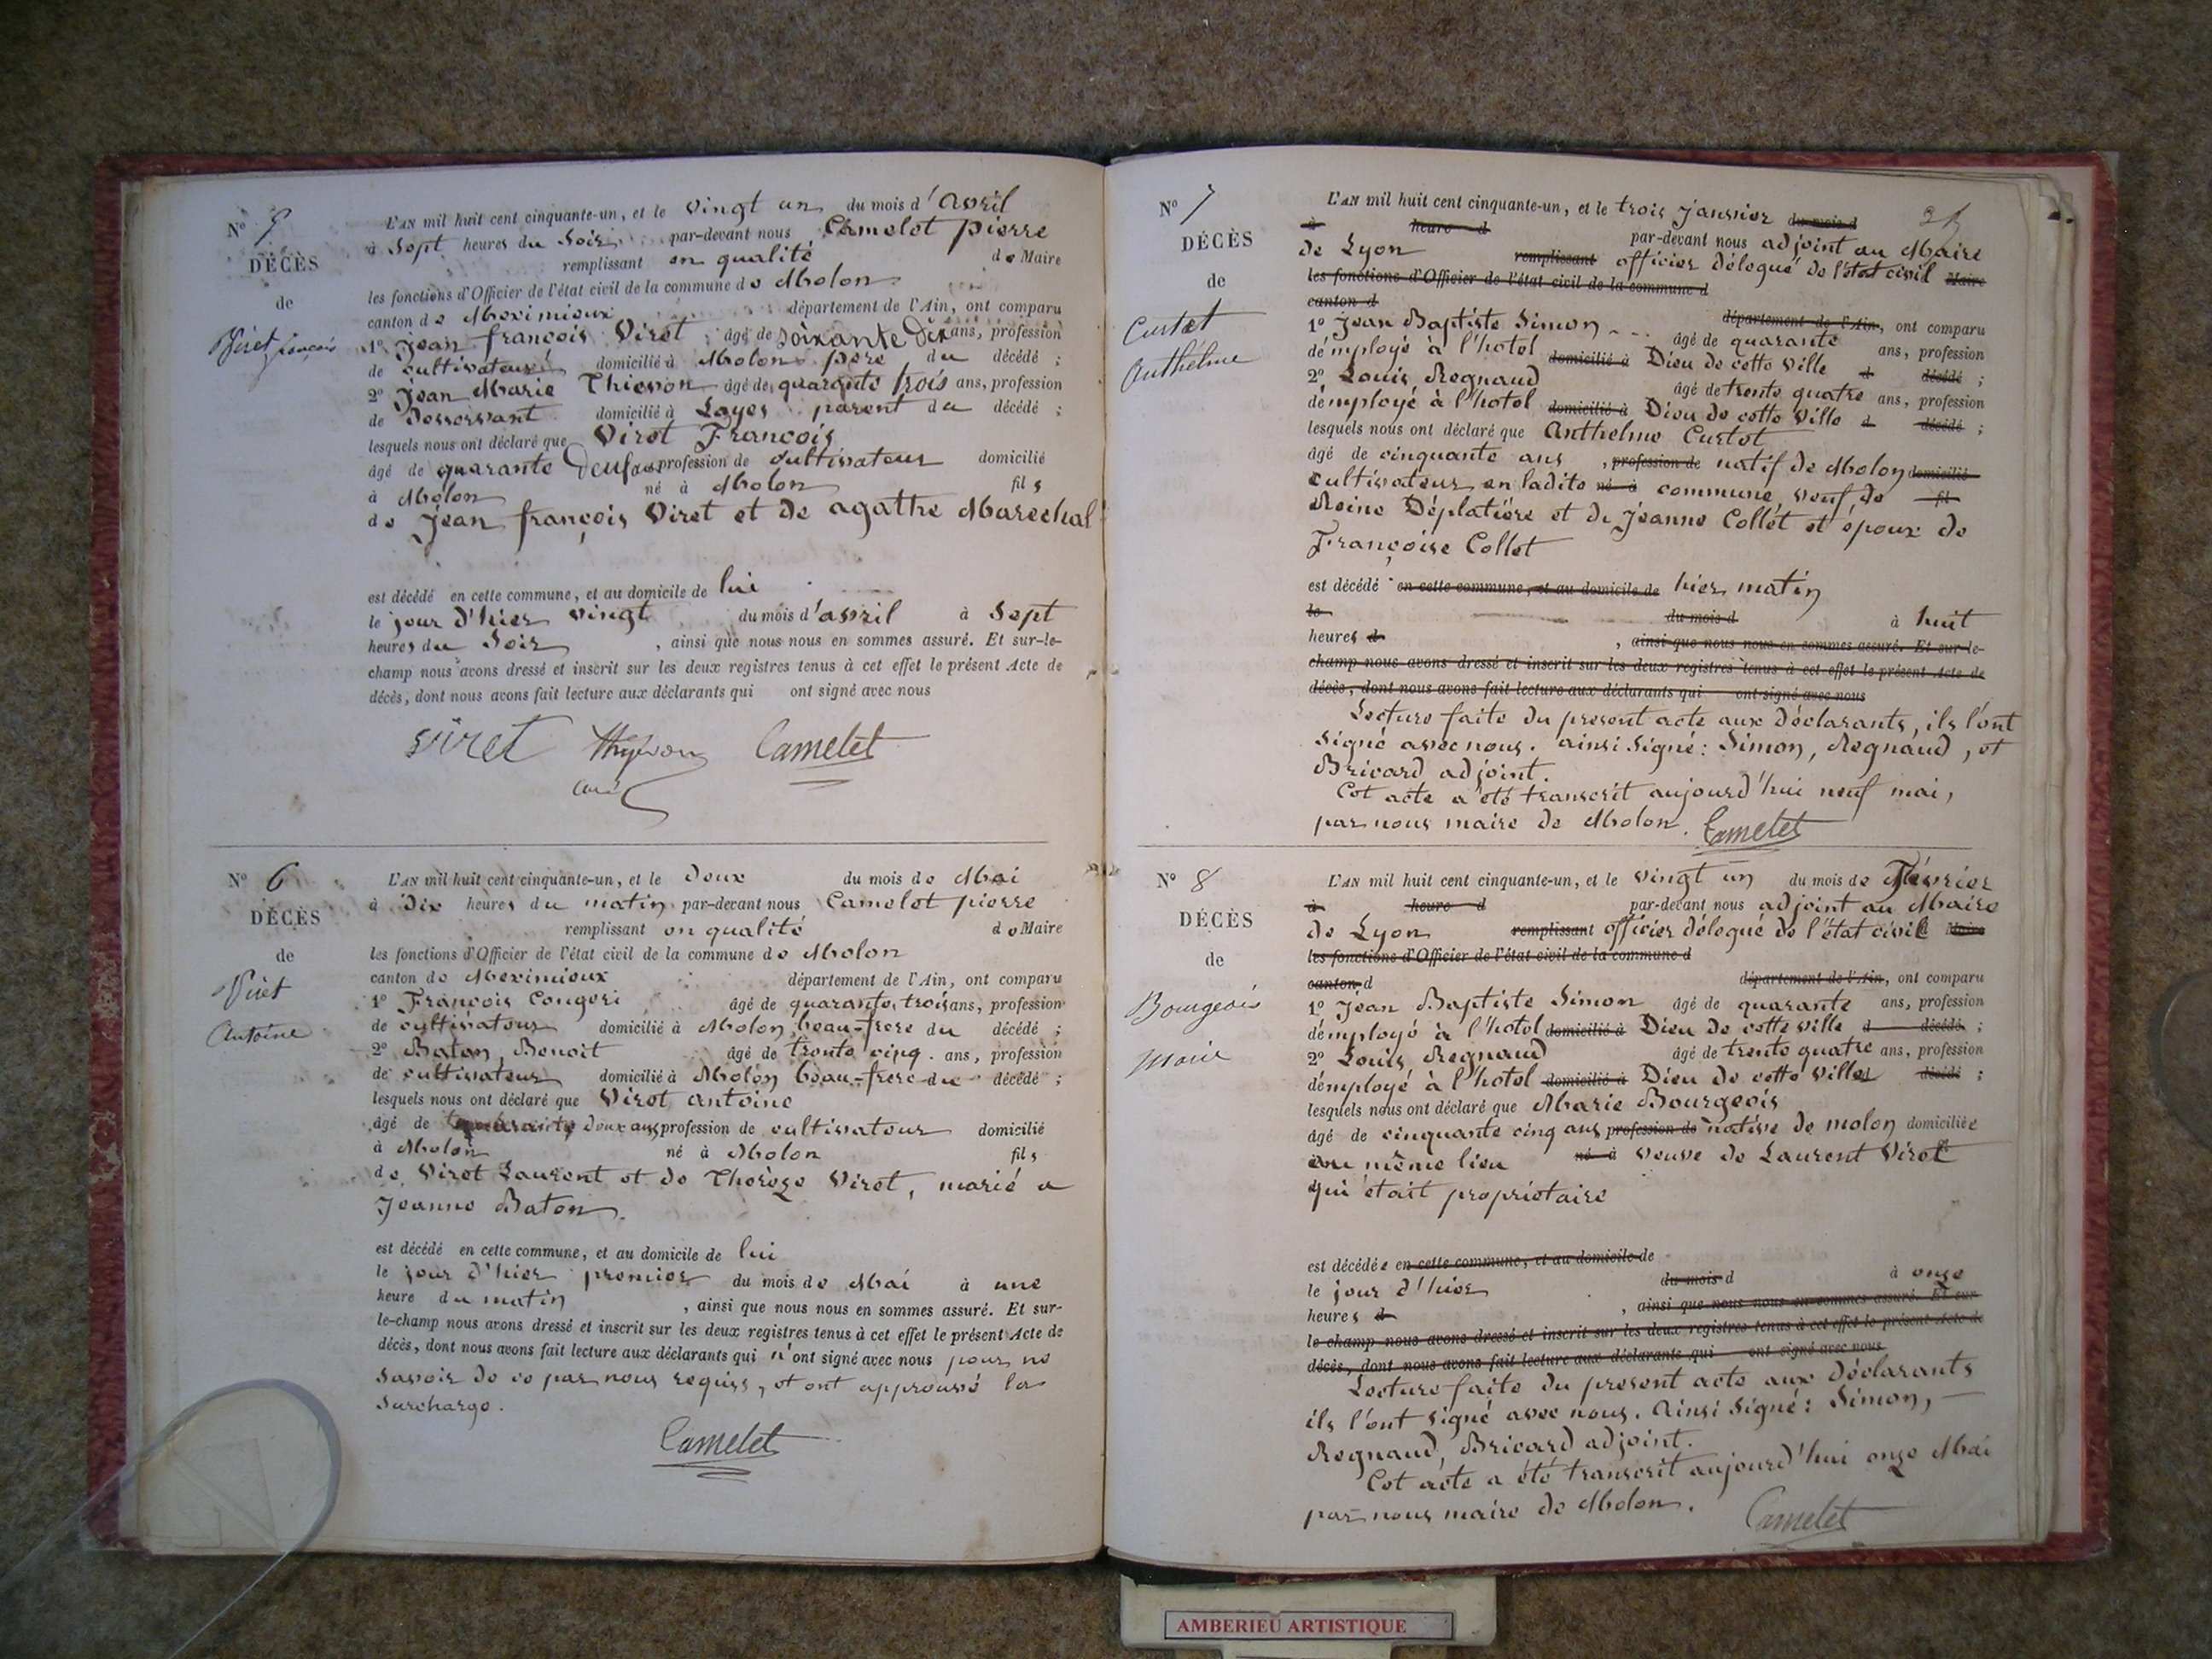 N° 5
DÉCÈS
de
Viret françois
L'AN mil huit cent cinquante-un, et le vingt un du mois d'avril
à Sept heures du Soir par-devant nous Camelet pierre
remplissant en qualité de Maire
les fonctions d'Officier de l'état civil de la commune de Molon
canton de Meximieux département de l'Ain, ont comparu
1° Jean françois Viret âgé de soixante Dix ans, profession
de cultivateur domicilié à Molon pere du décédé ;
2° Jean Marie Thievon âgé de quarante trois ans, profession
de Desservant domicilié à Loyes parent du décédé ;
lesquels nous ont déclaré que Viret François
âgé de quarante Deuf ans profession de cultivateur domicilié
à Molon né à Molon fils
de Jean françois Viret et de agathe Marechal
est décédé en cette commune, et au domicile de lui
le jour d'hier vingt du mois d'avril à Sept
heures du Soir , ainsi que nous nous en sommes assuré. Et sur-le-
champ nous avons dressé et inscrit sur les deux registres tenus à cet effet le présent Acte de
décès, dont nous avons fait lecture aux déclarants qui ont signé avec nous
viret Thyvon Camelet
curé
N° 6
DÉCÈS
de
Viret
Antoine
L'AN mil huit cent cinquante-un, et le Deux du mois de Mai
à Dix heures du matin par-devant nous Camelet pierre
remplissant en qualité de Maire
les fonctions d'Officier de l'état civil de la commune de Molon
canton de Meximieux département de l'Ain, ont comparu
1° François Congeri âgé de quarante trois ans, profession
de cultivateur domicilié à Molon beau-frere du décédé ;
2° Baton Benoit âgé de trente cinq ans, profession
de cultivateur domicilié à Molon beau-frere du décédé ;
lesquels nous ont déclaré que Viret antoine
âgé de quarante deux ans profession de cultivateur domicilié
à Molon né à Molon fils
de Viret Laurent et de Thérèze Viret, marié a
Jeanne Baton.
est décédé en cette commune, et au domicile de lui
le jour d'hier premier du mois de Mai à une
heure du matin , ainsi que nous nous en sommes assuré. Et sur-
le-champ nous avons dressé et inscrit sur les deux registres tenus à cet effet le présent Acte de
décès, dont nous avons fait lecture aux déclarants qui n'ont signé avec nous pour ne
Savoir de ce par nous requis, et ont approuvé la
Surcharge.
Camelet
N° 7
DÉCÈS
de
Curtet
Anthelme
L'AN mil huit cent cinquante-un, et le trois Janvier du mois d
à heure d par-devant nous adjoint au Maire
de Lyon remplissant officier délégué de l'état civil Maire
les fonctions d'Officier de l'état civil de la commune d
canton d département de l'Ain, ont comparu
1° Jean Baptiste Simon âgé de quarante ans, profession
d'employé à l'hotel domicilié à Dieu de cette ville d décédé ;
2° Louis Regnaud âgé de trente quatre ans, profession
d'employé à l'hotel domicilié à Dieu de cette ville d décédé ;
lesquels nous ont déclaré que Anthelme Curtet
âgé de cinquante ans , profession de natif de Molon domicilié
cultivateur en ladite né à commune, veuf de fil
Reine Déplatière et de Jeanne Collet et époux de
Françoise Collet
est décédé en cette commune, et au domicile de hier matin
le du mois d à huit
heures d , ainsi que nous nous en sommes assuré. Et sur-le-
champ nous avons dressé et inscrit sur les deux registres tenus à cet effet le présent Acte de
décès, dont nous avons fait lecture aux déclarants qui ont signé avec nous
Lecture faite du present acte aux Déclarants, ils l'ont
signé avec nous. ainsi signé : Simon, Regnaud, et
Bricard adjoint.
Cet acte a été transcrit aujourd'hui neuf mai,
par nous maire de Molon. Camelet
N° 8
DÉCÈS
de
Bourgeois
Marie
L'AN mil huit cent cinquante-un, et le vingt un du mois de Février
à heure d par-devant nous adjoint au Maire
de Lyon remplissant officier délégué de l'état civil Maire
les fonctions d'Officier de l'état civil de la commune d
canton d département de l'Ain, ont comparu
1° Jean Baptiste Simon âgé de quarante ans, profession
d'employé à l'hotel domicilié à Dieu de cette ville d décédé ;
2° Louis Regnaud âgé de trente quatre ans, profession
d'employé à l'hotel domicilié à Dieu de cette ville d décédé ;
lesquels nous ont déclaré que Marie Bourgeois
âgé de cinquante cinq ans profession de native de molon domiciliée
au même lieu né à veuve de Laurent Viret
qui était propriétaire
est décédée en cette commune, et au domicile de
le jour d'hier du mois d à onze
heures d , ainsi que nous nous en sommes assuré. Et sur
le champ nous avons dressé et inscrit sur les deux registres tenus à cet effet le présent Acte de
décès, dont nous avons fait lecture aux déclarants qui ont signé avec nous
Lecture faite du present acte aux Déclarants
ils l'ont signé avec nous. Ainsi signé : Simon,
Regnaud, Bricard adjoint.
Cet acte a été transcrit aujourd'hui onze Mai
par nous maire de Molon. Camelet
AMBERIEU ARTISTIQUE